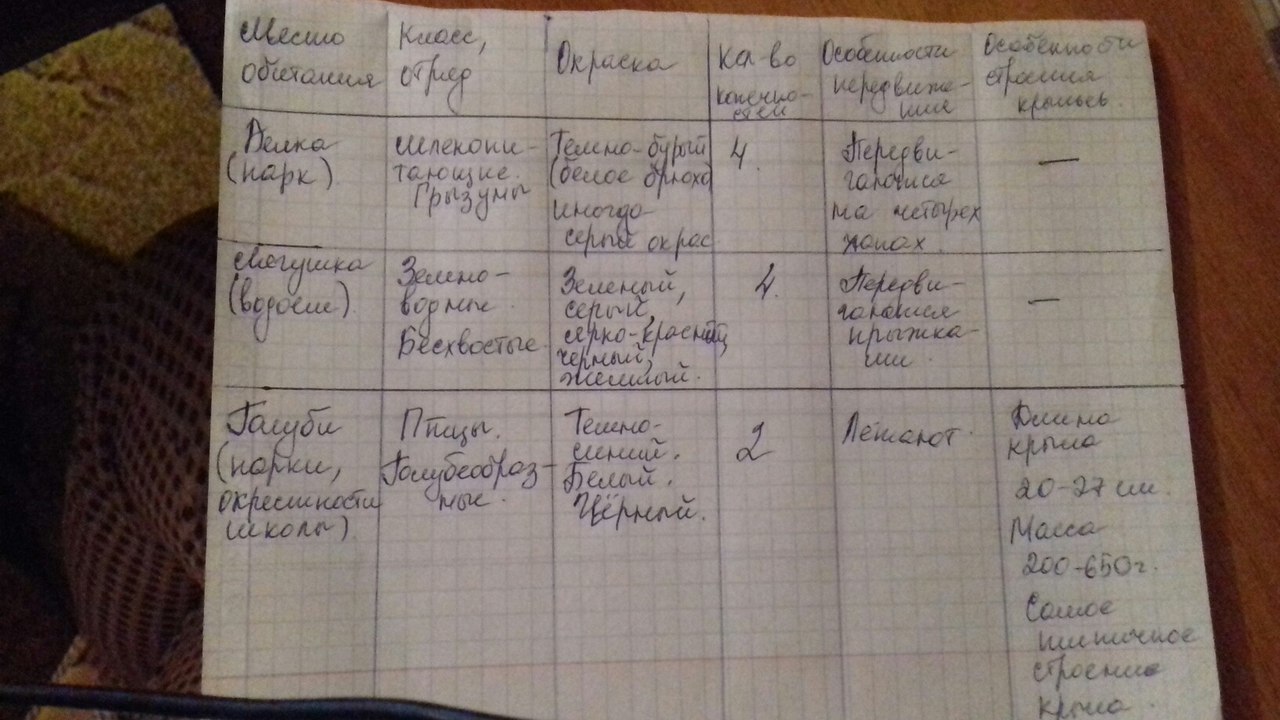 Место
обитания
Класс,
отряд
Окраска
Кол-во
конечно-
стей
Особенности
передвиже-
ния
Особенности
строения
крыльев.
Белка
(парк).
Млекопи-
тающие.
Грызуны
Тёмно-бурый
(белое брюхо
иногда
серый окрас
4.
Передви-
гаются
на четырех
лапах.
—
Лягушка
(водоем).
Земно-
водные.
Бесхвостые
Зеленый,
серый,
ярко-красный,
черный,
желтый.
4.
Передви-
гаются
прыжка-
ми.
—
Голуби
(парки,
окресности
школы)
Птицы.
Голубеобраз-
ные.
Темно-
синий.
Белый.
Чёрный.
2
Летают.
Длина
крыла
20-27 см.
Масса
200-650г.
Самое
типичное
строение
крыла.